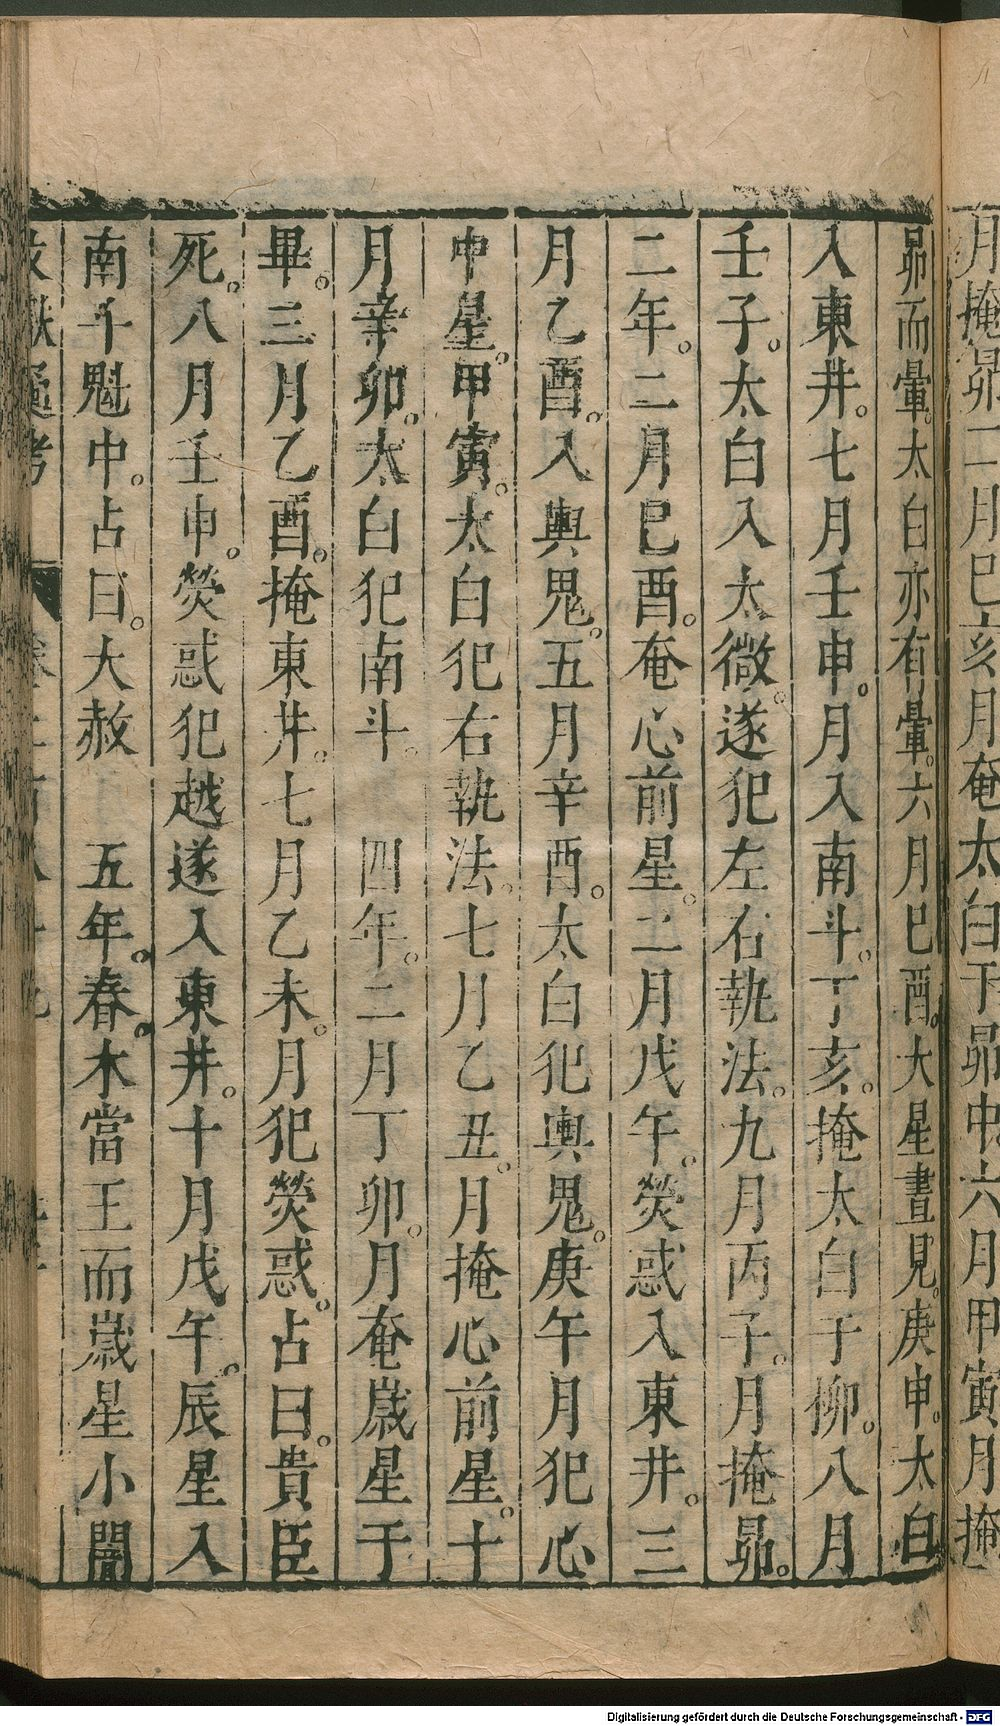 月掩昴二月巳亥月奄太白于昴中六月甲寅月掩
昴而暈。太白亦有暈。六月巳酉。大星晝見。庚申。太白
入東井。七月壬申。月入南斗。丁亥。掩太白于柳。八月
壬子。太白入太微。遂犯左右執法。九月丙子。月掩昴。
二年。二月巳酉。奄心前星。二月戊午。熒惑入東井。三
月乙酉。入輿鬼。五月辛酉。太白犯輿鬼。庚午月犯心
中星。甲寅。太白犯右執法。七月乙丑。月掩心前星。十
月辛卯。太白犯南斗。　四年。二月丁卯。月奄歲星于
畢。三月乙酉。掩東井。七月乙未。月犯熒惑。占曰。貴臣
死。八月壬申。熒惑犯越遂入東井。十月戊午。辰星入
南斗魁中。占曰。大赦　五年。春。木當王而歲星小闇
文獻通考
Digitalisierung gefördert durch die Deutsche Forschungsgemeinschaft - DFG